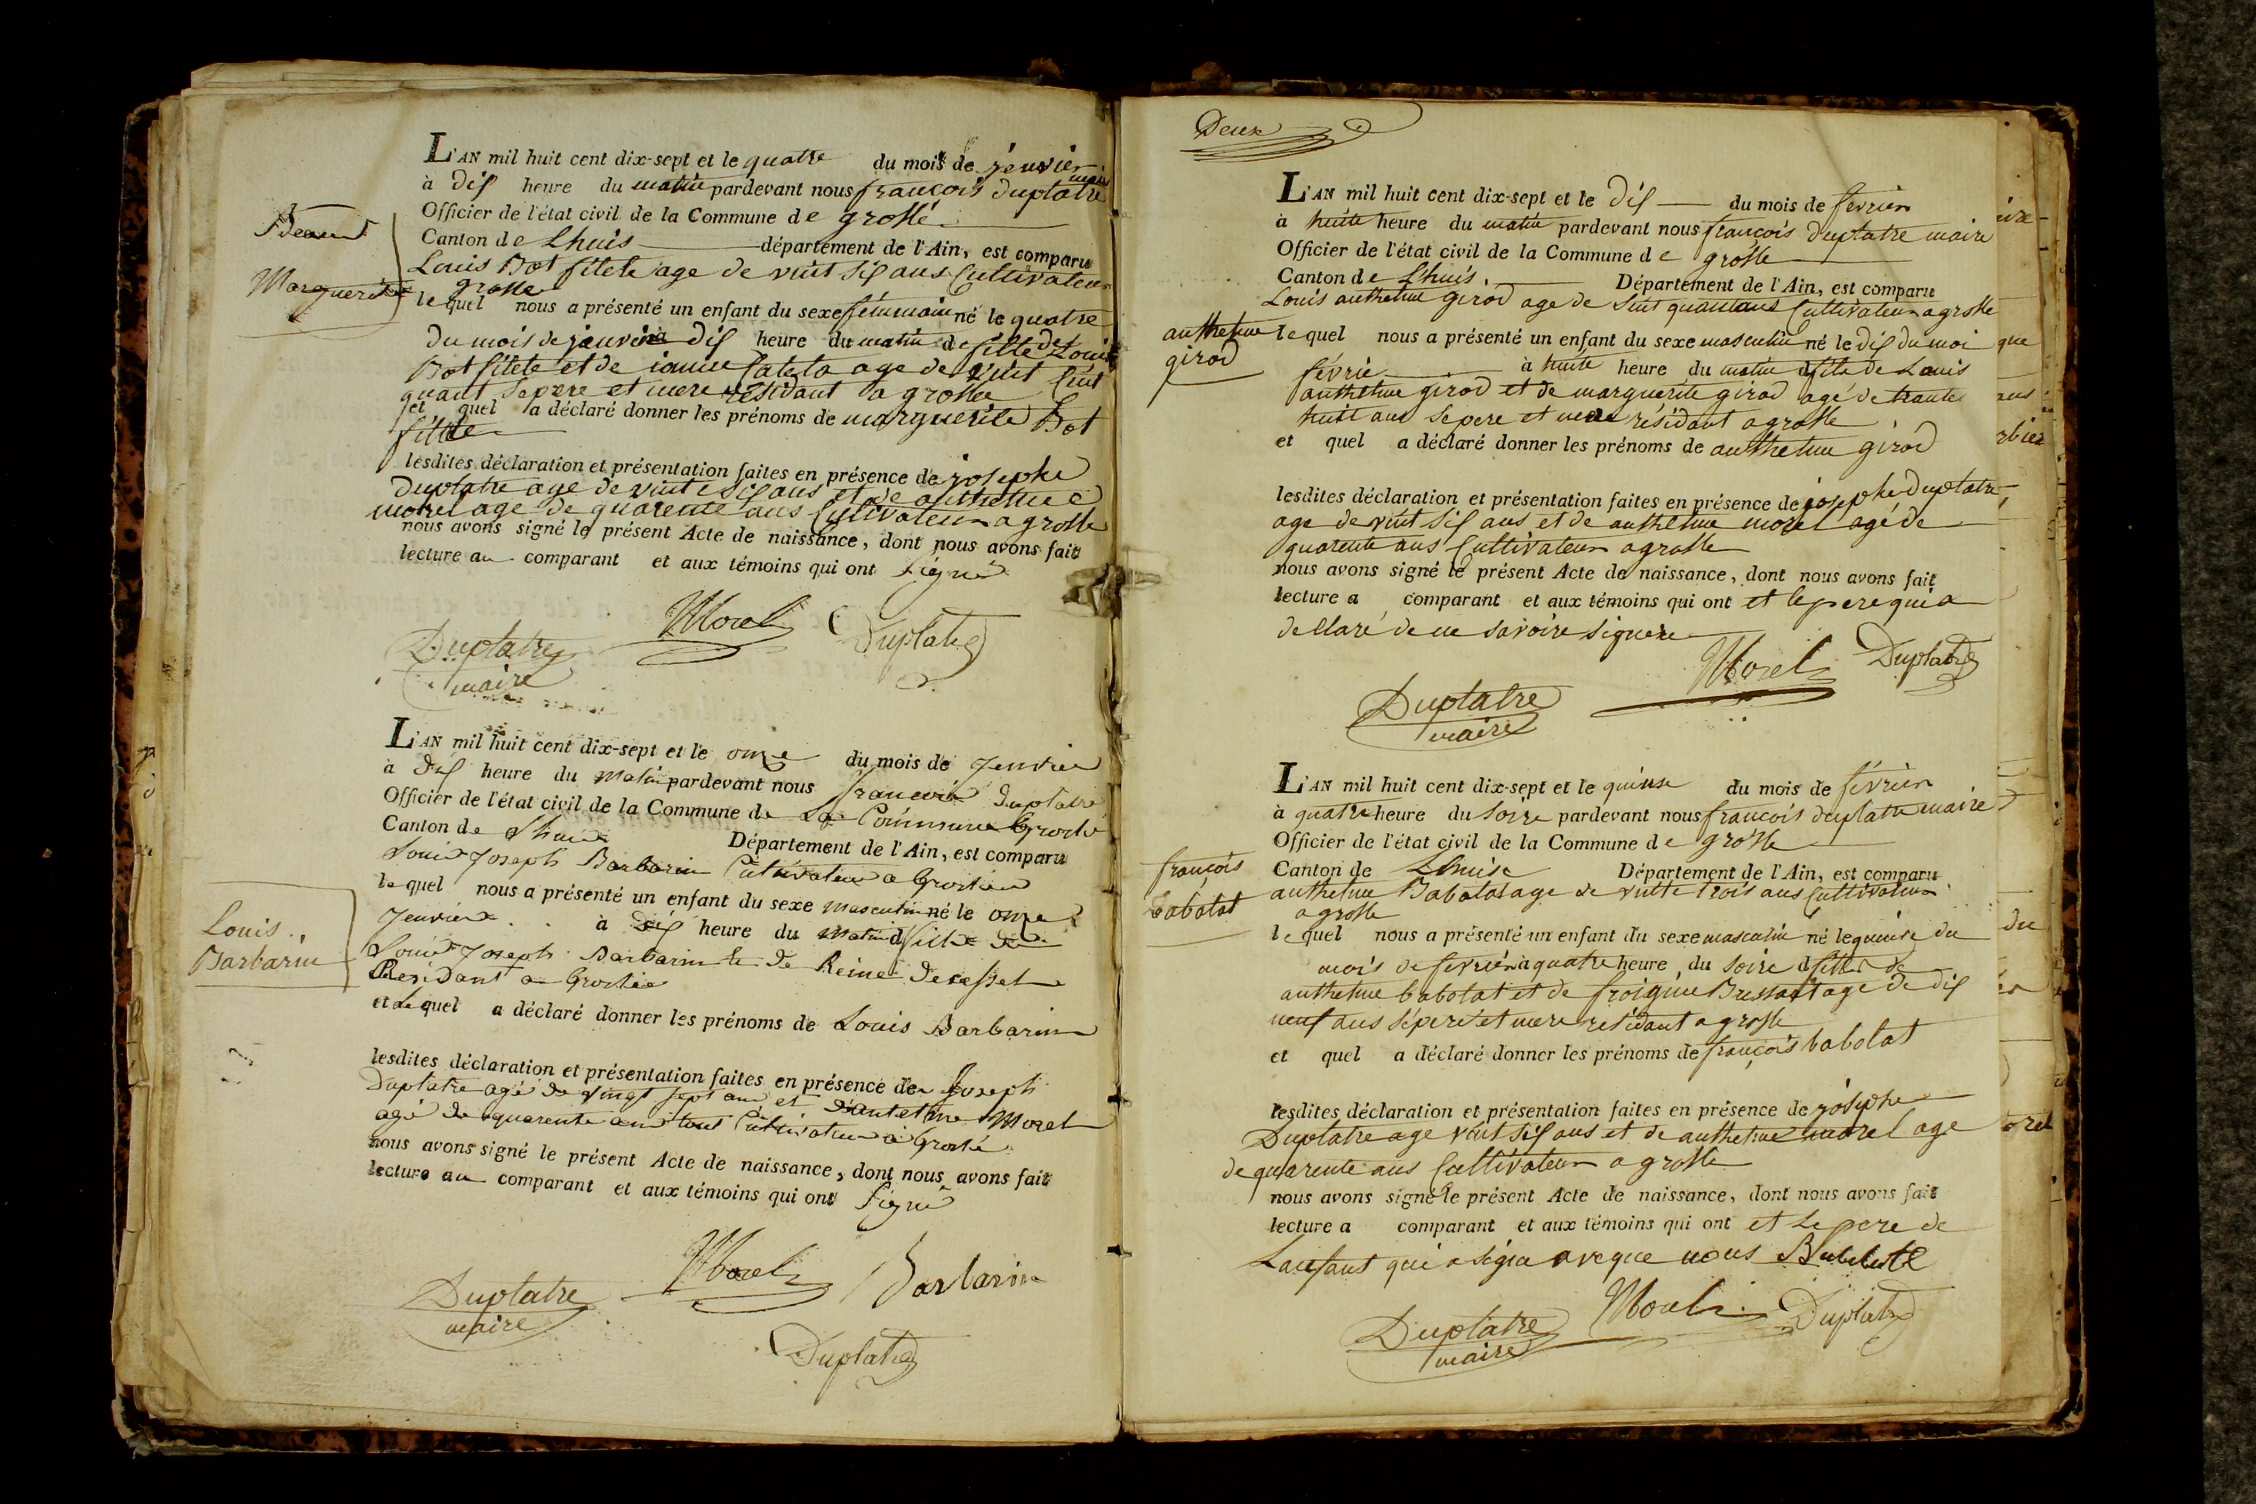 L'AN mil huit cent dix-sept et le quatre du mois de jenvier
à dis heure du matin pardevant nous françois duplatre maire
Officier de l'état civil de la Commune de grosse
Canton de Lhuis département de l'Ain, est comparu
Louis Bot age de vint sis ans Cultivateur
a grosse
lequel nous a présenté un enfant du sexe né le quatre
du mois de jenvier à dis heure du matin de Louis
Bot et de age de vint
pere et mere résidant a grosse
et quel a déclaré donner les prénoms de marguerite Bot
lesdites déclaration et présentation faites en présence de josephe
Duplatre age de vinte sis ans et de anthelme
morel age de quarente ans Cultivateur a grosse
nous avons signé le présent Acte de naissance, dont nous avons fait
lecture au comparant et aux témoins qui ont signé
Marguerite
Duplatre
maire
Morel
Duplatre
L'AN mil huit cent dix-sept et le onze du mois de Jenvier
à dis heure du matin pardevant nous francois Duplatre
Officier de l'état civil de la Commune de La Commune
Canton de Lhuis Département de l'Ain, est comparu
Louis Joseph Barbarin Cultivateur a
lequel nous a présenté un enfant du sexe masculin né le onze
Jenvier à dis heure du matin de
Louis Joseph Barbarin et de Reine
Residant a
et lequel a déclaré donner les prénoms de Louis Barbarin
lesdites déclaration et présentation faites en présence de Joseph
Duplatre agé de vingt sept ans et d'antelme Morel
agé de quarente ans tous Cultivateur à
nous avons signé le présent Acte de naissance, dont nous avons fait
lecture au comparant et aux témoins qui ont signé
Louis
Barbarin
Duplatre
maire
Morel
Barbarin
Duplatre
Deux
L'AN mil huit cent dix-sept et le dis du mois de fevrier
à huite heure du matin pardevant nous françois duplatre maire
Officier de l'état civil de la Commune de grosse
Canton de Lhuis. Département de l'Ain, est comparu
Louis anthelme girod age de Cultivateur a grosse
lequel nous a présenté un enfant du sexe masculin né le dis du moi
févrie à huite heure du matin de Louis
anthelme girod et de marguerite girod agé de trante
huit ans pere et mere résidant a grosse
et quel a déclaré donner les prénoms de anthelme girod
lesdites déclaration et présentation faites en présence de josephe duplatre
age de vint sis ans et de anthelme morel agé de
quarente ans Cultivateur a grosse
nous avons signé le présent Acte de naissance, dont nous avons fait
lecture a comparant et aux témoins qui ont et le pere qui a
declaré de ne savoire signere
anthelme
girod
Duplatre
maire
Morel
Duplatre
L'AN mil huit cent dix-sept et le quinse du mois de févrien
à quatre heure du soire pardevant nous francois duplatre maire
Officier de l'état civil de la Commune de grosse
Canton de Lhuise Département de l'Ain, est comparu
anthelme Babolat age de vinte trois ans Cultivateur
a grosse
lequel nous a présenté un enfant du sexe masculin né le quinse du
mois de fevrier à quatre heure du soire de
anthelme babolat et de age de dis
neuf ans pere et mere residant a grosse
et quel a déclaré donner les prénoms de françois babolat
lesdites déclaration et présentation faites en présence de josephe
Duplatre age vint sis ans et de anthelme morel age
de quarente ans Cultivateur a grosse
nous avons signé le présent Acte de naissance, dont nous avons fait
lecture a comparant et aux témoins qui ont et le pere de
Lanfant qui a signa aveque nous
françois
babolat
Duplatre
maire
Morel
Duplatre